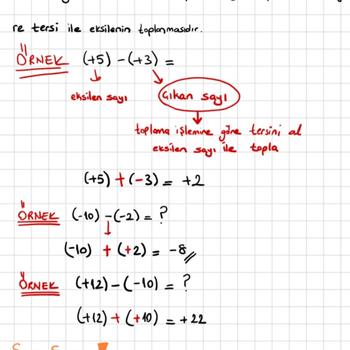 re tersi ile eksilenin toplanmasıdır.
ÖRNEK (+5) - (+3) =
eksilen sayı Çıkan sayı
toplama işlemine göre tersini al
eksilen sayı ile topla
(+5) + (-3) = +2
ÖRNEK (-10) - (-2) = ?
(-10) + (+2) = -8//
ÖRNEK (+12) - (-10) = ?
(+12) + (+10) = +22